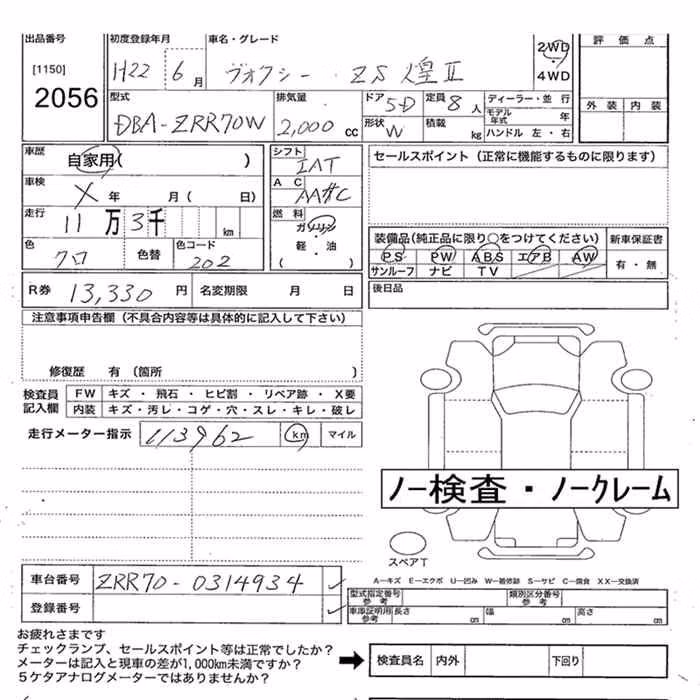 出品番号 初度登録年月 車名・グレード 2WD 評価点
[1150] H22年 6月 ヴォクシー・ZS 煌Ⅱ 4WD
2056 型式 排気量 ドア 5D 定員 8人 ディーラー・並行 外装 内装
DBA-ZRR70W 2,000cc 形状 W 積載 kg モデル年式 年 ハンドル 左・右
車歴 自家用( ) シフト IAT セールスポイント (正常に機能するものに限ります)
車検 X 年 月 ( 日) AC AAC
走行 11万3千 km 燃料 ガソリン
軽・油
( )
色 クロ 色替 色コード 202
装備品(純正品に限り○をつけてください) 新車保証書
PS PW ABS エアB AW 有・無
サンルーフ ナビ TV
R券 13,330円 名変期限 月 日 後日品
注意事項申告欄 (不具合内容等は具体的に記入して下さい)
修復歴 有 (箇所 )
検査員 FW キズ・飛石・ヒビ割・リペア跡・X要
記入欄 内装 キズ・汚レ・コゲ・穴・スレ・キレ・破レ
走行メーター指示 113962 km マイル
ノー検査・ノークレーム
スペアT
車台番号 ZRR70-0314934
登録番号
A—キズ E—エクボ U—凹み W—補修跡 S—サビ C—腐食 XX—交換済
型式指定番号 参考 類別区分番号 参考
車庫証明用 参考 長さ cm 幅 cm 高さ cm
お疲れさまです
チェックランプ、セールスポイント等は正常でしたか?
メーターは記入と現車の差が1,000km未満ですか?
5ケタアナログメーターではありませんか?
検査員名 内外 下回り